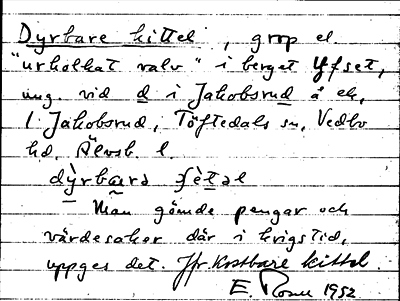 Dyrbare kittel, grop el.
"urholkat valv" i berget Yfset,
ung. vid d i Jakobsrud å ek,
1 Jakobsrud, Töftedals sn, Vedbo
hd, Älvsb. l.
dỳrbara ʃètəl
Man gömde pengar och
värdesaker där i krigstid,
uppges det. Jfr Kostbare kittel.
E. 1952